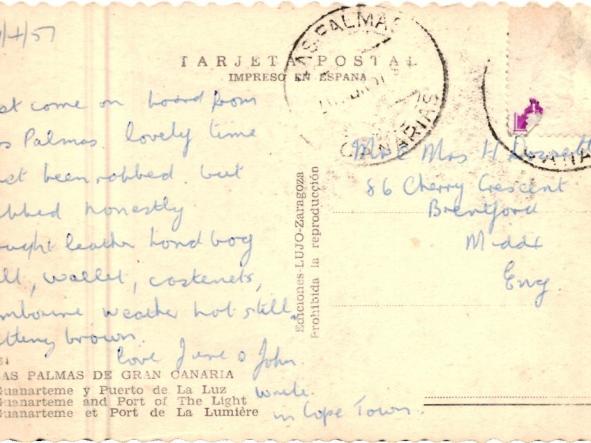 /4/57
TARJETA POSTAL
IMPRESO EN ESPAÑA
LAS PALMAS
CANARIAS
st come on board from
s Palmas lovely time
st been robbed but
bbed honestly
ought leather handbag
ll, wallet, castenets,
mbourine weather hot still
etting brown.
love June & John
write
in Cape Town.
AS PALMAS DE GRAN CANARIA
Guanarteme y Puerto de La Luz
Guanarteme and Port of The Light
Guanarteme et Port de La Lumière
Ediciones-LUJO-Zaragoza
Prohibida la reproducción
Mr & Mrs H
86 Cherry Crescent
Brentford
Middx
Eng